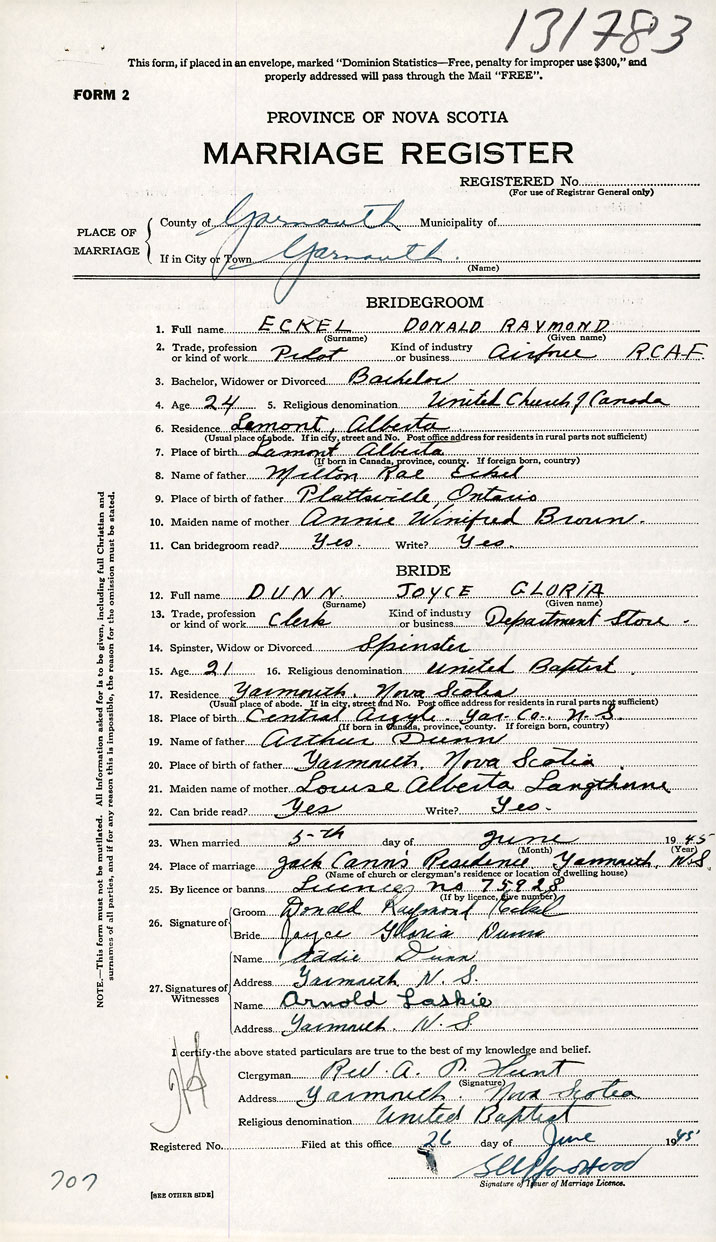 131783
This form, if placed in an envelope, marked "Dominion Statistics—Free, penalty for improper use $300," and
properly addressed will pass through the Mail "FREE".
FORM 2
PROVINCE OF NOVA SCOTIA
MARRIAGE REGISTER
REGISTERED No.
(For use of Registrar General only)
PLACE OF MARRIAGE
County of Yarmouth Municipality of
If in City or Town Yarmouth.
(Name)
BRIDEGROOM
1. Full name ECKEL DONALD RAYMOND
(Surname) (Given name)
2. Trade, profession or kind of work Pilot Kind of industry or business Airforce R.C.A.F.
3. Bachelor, Widower or Divorced Bachelor
4. Age 24 5. Religious denomination United Church of Canada
6. Residence Lamont, Alberta
(Usual place of abode. If in city, street and No. Post office address for residents in rural parts not sufficient)
7. Place of birth Lamont Alberta
(If born in Canada, province, county. If foreign born, country)
8. Name of father Milton Rae Eckel
9. Place of birth of father Plattsville, Ontario
10. Maiden name of mother Annie Winifred Brown.
11. Can bridegroom read? Yes. Write? Yes.
BRIDE
12. Full name DUNN. JOYCE GLORIA
(Surname) (Given name)
13. Trade, profession or kind of work Clerk Kind of industry or business Department Store.
14. Spinster, Widow or Divorced Spinster
15. Age 21 16. Religious denomination United Baptist.
17. Residence Yarmouth, Nova Scotia
(Usual place of abode. If in city, street and No. Post office address for residents in rural parts not sufficient)
18. Place of birth Central Argyle. Yar. Co. N.S.
(If born in Canada, province, county. If foreign born, country)
19. Name of father Arthur Dunn
20. Place of birth of father Yarmouth, Nova Scotia.
21. Maiden name of mother Louise Alberta Langthorne
22. Can bride read? Yes Write? Yes.
23. When married 5th day of June 1945
(Month) (Year)
24. Place of marriage Jack Cann's Residence Yarmouth, N.S.
(Name of church or clergyman's residence or location of dwelling house)
25. By licence or banns Licence no 75928
(If by licence, give number)
26. Signature of
Groom Donald Raymond Eckel
Bride Joyce Gloria Dunn
27. Signatures of Witnesses
Name Addie Dunn
Address Yarmouth N.S.
Name Arnold Laskie
Address Yarmouth. N.S.
I certify the above stated particulars are true to the best of my knowledge and belief.
Clergyman Rev. A. P. Hunt
(Signature)
Address Yarmouth. Nova Scotia
Religious denomination United Baptist
Registered No. Filed at this office 26 day of June 1945
Signature of Issuer of Marriage Licence.
707
[SEE OTHER SIDE]
NOTE.—This form must not be mutilated. All information asked for is to be given, including full Christian and
surnames of all parties, and if for any reason this is impossible, the reason for the omission must be stated.